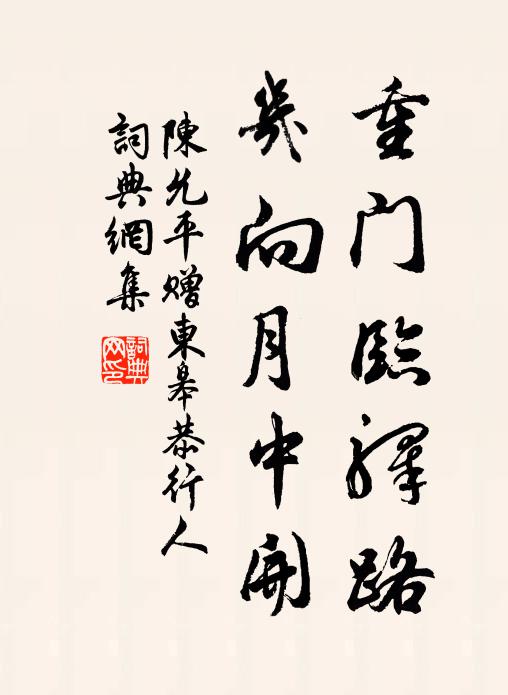 重門臨驛路
幾向月中開
陳允平贈東皋恭行人
詞典網集
詞典網印